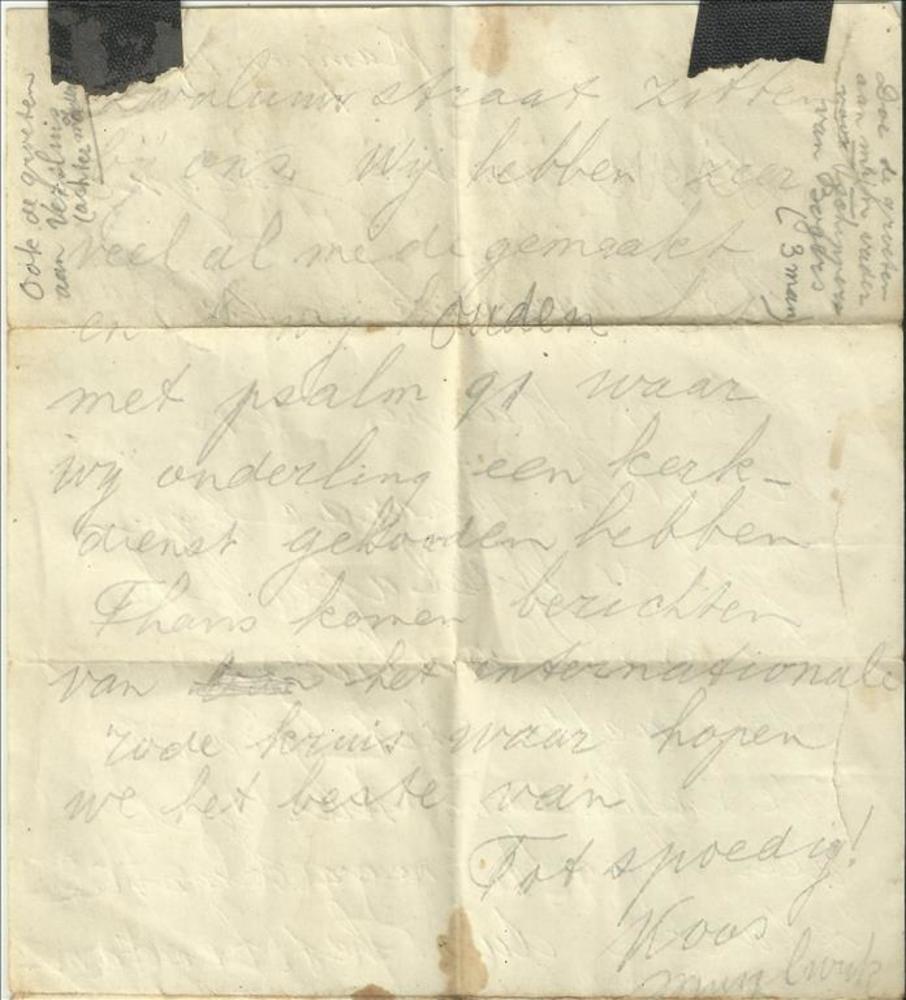 straat zitten
bij ons. Wij hebben zeer
veel al mede gemaakt
en wij houden
met psalm 91 waar
wij onderling een kerk-
dienst gehouden hebben
Thans komen berichten
van het internationale
rode kruis waar hopen
we het beste van
Tot spoedig!
Koos
Ook de groeten
aan
Doe de groeten
aan mijn vader
van
(3 maal)